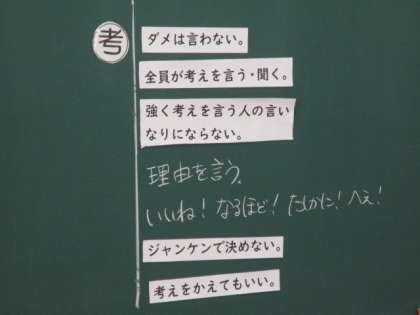 考
ダメは言わない。
全員が考えを言う・聞く。
強く考えを言う人の言い
なりにならない。
理由を言う。
いいね!なるほど!たしかに!へぇ!
ジャンケンで決めない。
考えをかえてもいい。